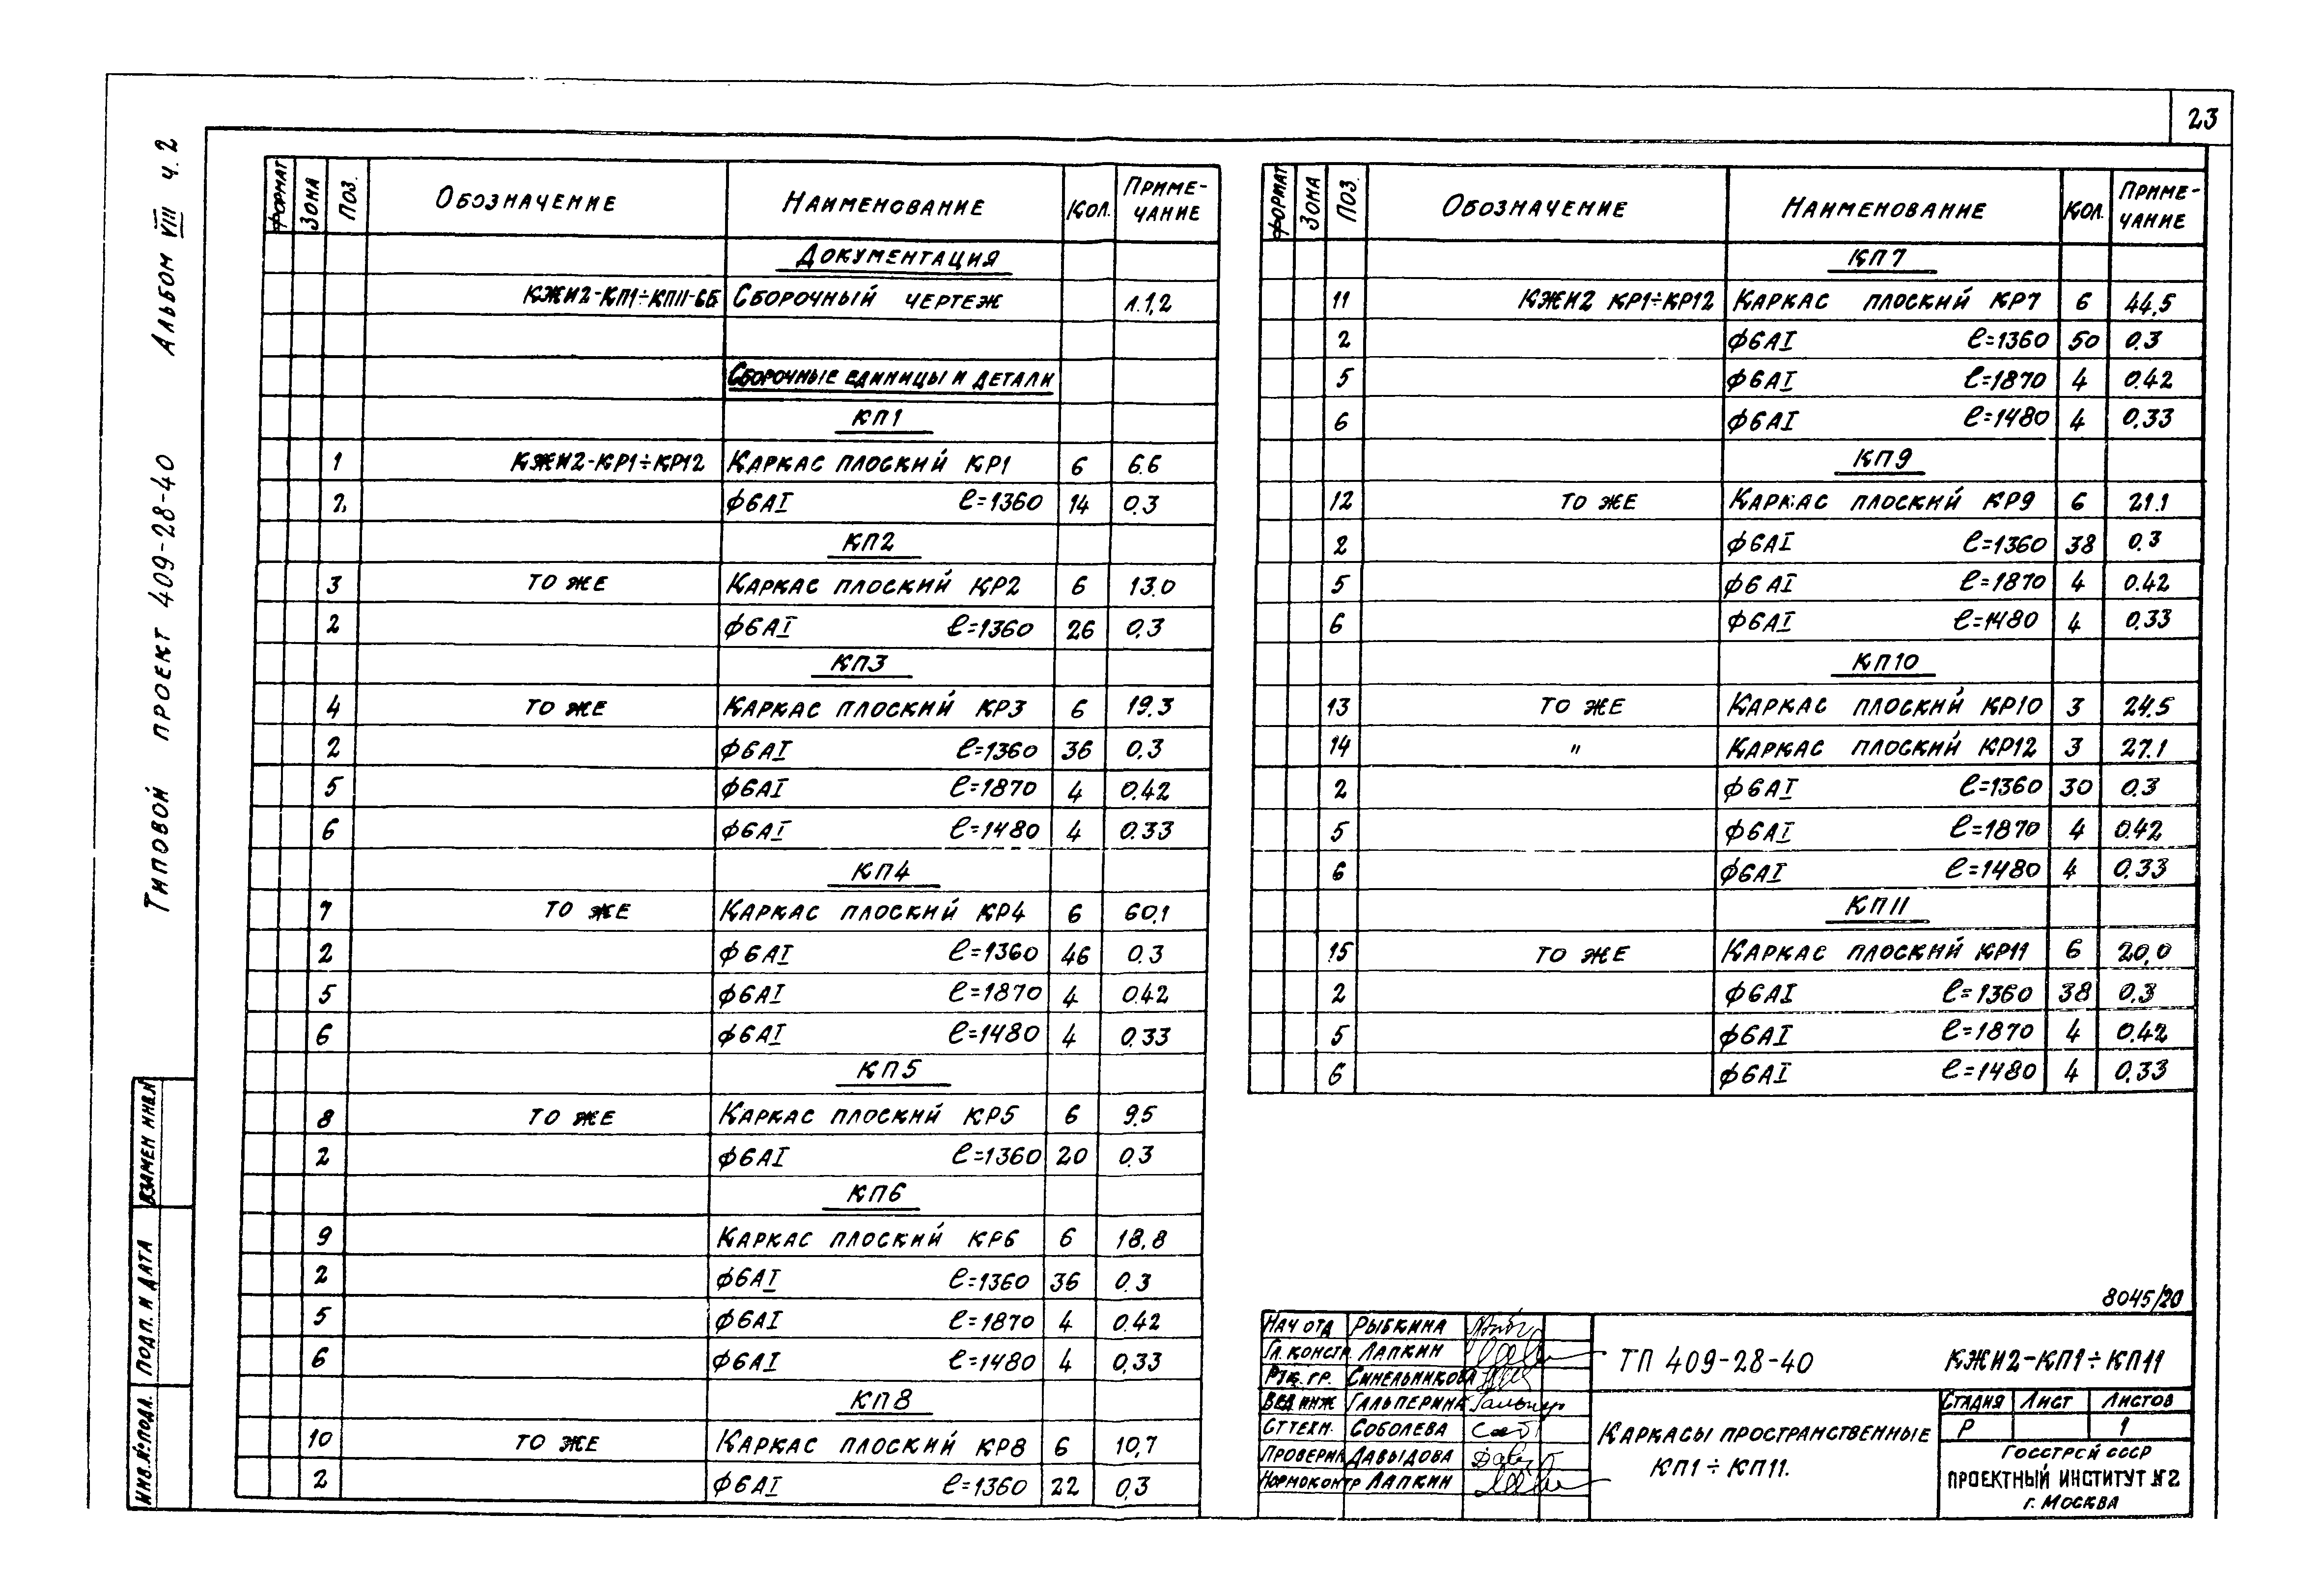 23
Типовой проект 409-28-40 Альбом VIII ч. 2
Формат Зона Поз. Обозначение Наименование Кол. Приме-
чание
Документация
КЖИ2-КП1÷КП11-СБ Сборочный чертеж л.1,2
Сборочные единицы и детали
КП1
1 КЖИ2-КР1÷КР12 Каркас плоский КР1 6 6.6
2 ф6АI ℓ=1360 14 0.3
КП2
3 то же Каркас плоский КР2 6 13.0
2 ф6АI ℓ=1360 26 0.3
КП3
4 то же Каркас плоский КР3 6 19.3
2 ф6АI ℓ=1360 36 0.3
5 ф6АI ℓ=1870 4 0.42
6 ф6АI ℓ=1480 4 0.33
КП4
7 то же Каркас плоский КР4 6 60,1
2 ф6АI ℓ=1360 46 0.3
5 ф6АI ℓ=1870 4 0.42
6 ф6АI ℓ=1480 4 0.33
КП5
8 то же Каркас плоский КР5 6 9.5
2 ф6АI ℓ=1360 20 0.3
КП6
9 Каркас плоский КР6 6 18,8
2 ф6АI ℓ=1360 36 0.3
5 ф6АI ℓ=1870 4 0.42
6 ф6АI ℓ=1480 4 0,33
КП8
10 то же Каркас плоский КР8 6 10,7
2 ф6АI ℓ=1360 22 0,3
Формат Зона Поз. Обозначение Наименование Кол. Приме-
чание
КП7
11 КЖИ2 КР1÷КР12 Каркас плоский КР7 6 44,5
2 ф6АI ℓ=1360 50 0.3
5 ф6АI ℓ=1870 4 0.42
6 ф6АI ℓ=1480 4 0.33
КП9
12 то же Каркас плоский КР9 6 21.1
2 ф6АI ℓ=1360 38 0.3
5 ф6АI ℓ=1870 4 0.42
6 ф6АI ℓ=1480 4 0.33
КП10
13 то же Каркас плоский КР10 3 24.5
14 " Каркас плоский КР12 3 27.1
2 ф6АI ℓ=1360 30 0.3
5 ф6АI ℓ=1870 4 0.42
6 ф6АI ℓ=1480 4 0.33
КП11
15 то же Каркас плоский КР11 6 20,0
2 ф6АI ℓ=1360 38 0.3
5 ф6АI ℓ=1870 4 0.42
6 ф6АI ℓ=1480 4 0,33
8045/20
Нач отд Рыбкина
Гл. констр. Лапкин
Рук. гр. Синельникова
Вед инж Гальперина
Ст техн. Соболева
Проверил Давыдова
Нормоконтр Лапкин
ТП 409-28-40 КЖИ2-КП1÷КП11
Каркасы пространственные
КП1÷КП11.
Стадия Лист Листов
Р 1
Госстрой СССР
Проектный институт №2
г. Москва
Взамен инв.№
Подп. и дата
Инв.№ подл.